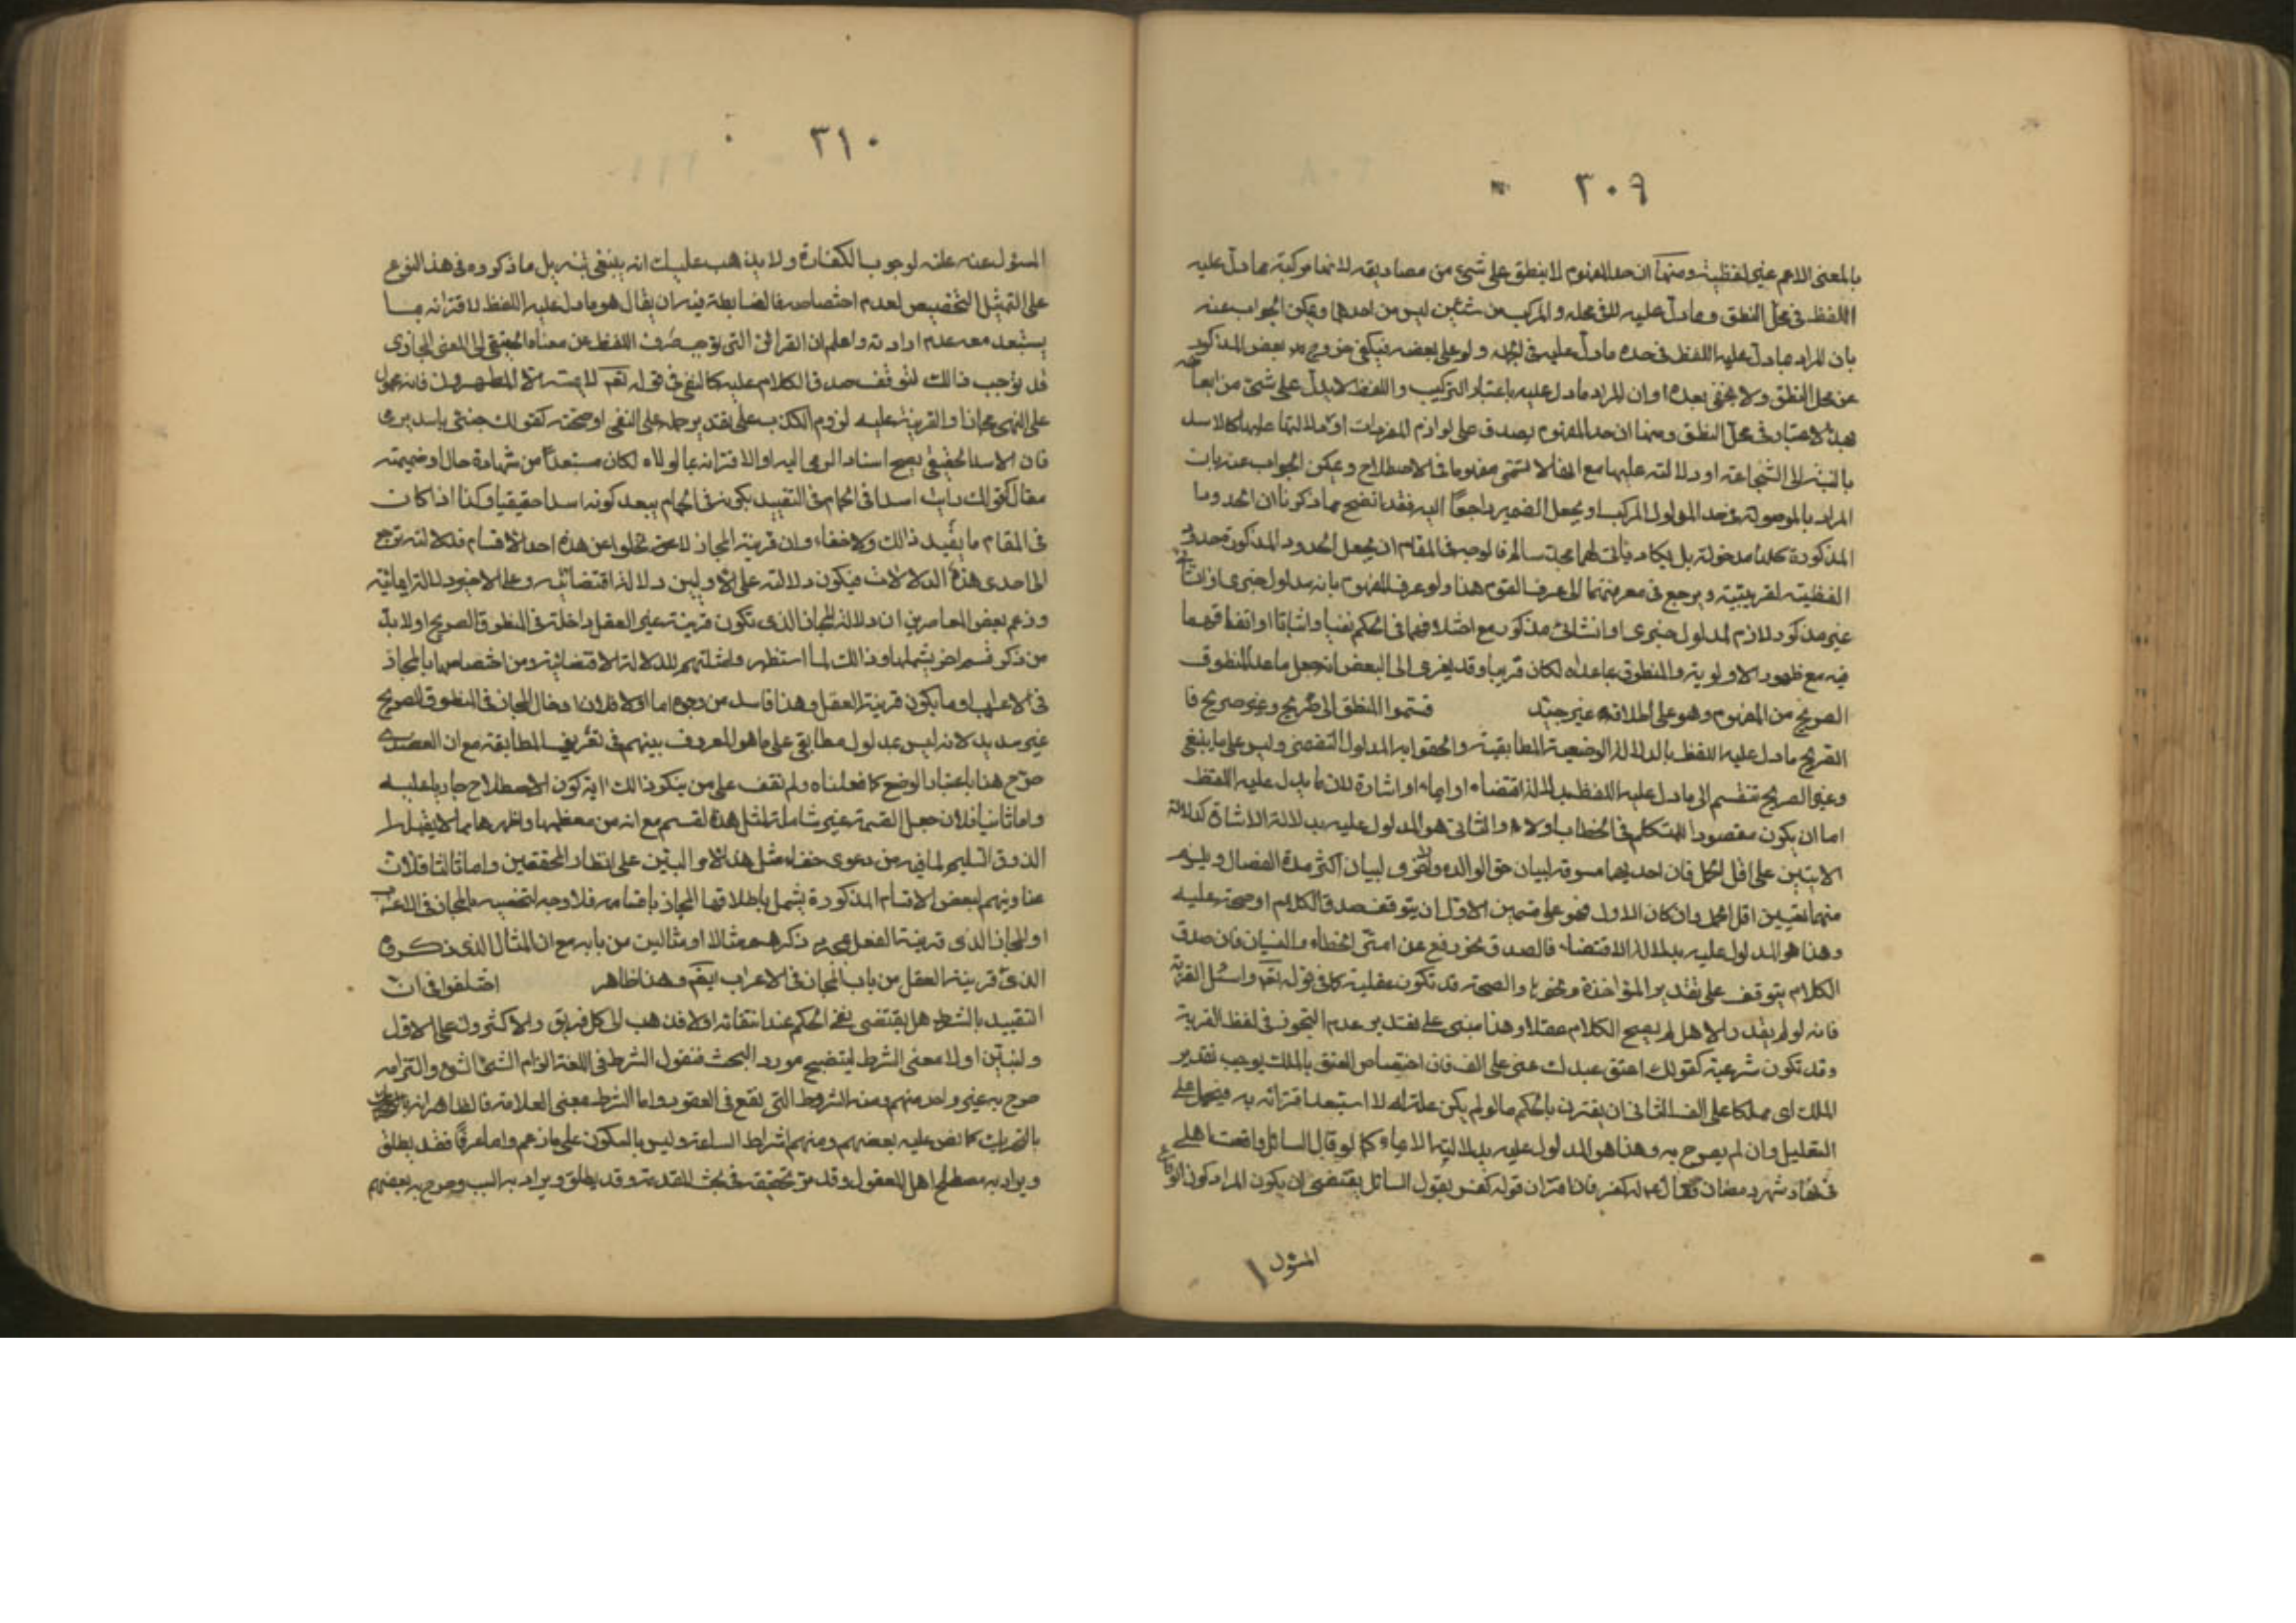 ٣٠٩
بالمعنى الاعم غير لفظية ومنها ان حد المفهوم لا ينطبق على شئ من مصاديقه لانها مركبة مما دل عليه
اللفظ في محل النطق ومما دل عليه لا في محله والمركب من شيئين ليس من احدهما ويمكن الجواب عنه
بان المراد ما دل عليه اللفظ في حده ما دل عليه في الجملة ولو على بعضه فيكفي خروج بعض المذكور
عن محل النطق ولا يخفى بعده او ان المراد ما دل عليه باعتبار التركيب واللفظ لا يدل على شئ من ابعاضه
بهذا الاعتبار في محل النطق ومنها ان حد المفهوم يصدق على لوازم المفردات او دلالتها عليها كالاسد
بالنسبة الى الشجاعة او دلالته عليها مع انها لا تسمى مفهوما في الاصطلاح ويمكن الجواب عنه بان
المراد بالموصولة في حد المدلول المركب او يجعل الضمير راجعا اليه فقد اتضح مما ذكرنا ان الحدود
المذكورة كلها مدخولة بل يكاد يأتي لهما محد سالم فالوجه في المقام ان يجعل الحدود المذكورة حدود
لفظية تقريبية ويرجع في معرفتهما الى عرف القوم هذا ولو عرف المفهوم بانه مدلول خبري او انشائي
غير مذكور لازم لمدلول خبري او انشائي مذكور مع اختلافهما في الحكم نفيا واثباتا او اتفاقهما
فيه مع ظهور الاولوية والمنطوق بما عداه لكان قريبا وقد يعزى الى البعض انه جعل ما عدا المنطوق
الصريح من المفهوم وهو على اطلاقه غير جيد قسموا المنطوق الى صريح وغير صريح فا
لصريح ما دل عليه اللفظ بالدلالة الوضعية المطابقية والحقوا به المدلول التضمني وليس على ما ينبغي
وغير الصريح تنقسم الى ما دل عليه اللفظ بدلالة اقتضاء او ايماء او اشارة لان ما يدل عليه اللفظ
اما ان يكون مقصودا للمتكلم في الخطاب اولا والثاني هو المدلول عليه بدلالة الاشارة كدلالة
الايتين على اقل الحمل فان احديهما مسوقة لبيان حق الوالدة والاخرى لبيان اكثر مدة الفصال ويلزم
منهما تعيين اقل الحمل وان كان الاول فهو على قسمين الاول ان يتوقف صدق الكلام او صحته عليه
وهذا هو المدلول عليه بدلالة الاقتضاء فالصدق نحو رفع عن امتي الخطاء والنسيان فان صدق
الكلام يتوقف على تقدير المؤاخذة ونحوها والصحة قد تكون عقلية كما في قوله تعم واسئل القرية
فانه لو لم يقدر الاهل لم يصح الكلام عقلا وهذا مبني على تقدير عدم التجوز في لفظ القرية
وقد تكون شرعية كقولك اعتق عبدك عني على الف فان اختصاص العتق بالملك يوجب تقدير
الملك اي مملكا على الف الثاني ان يقترن بالحكم ما لو لم يكن علة له لا استبعد اقترانه به فيحمل على
التعليل وان لم يصرح به وهذا هو المدلول عليه بدلالة الايماء كما لو قال السائل واقعت اهلي
في نهار شهر رمضان فقال ع له كفر فان اقتران قوله كفر بقول السائل يقتضي ان يكون المراد كون الوقاع
المسؤل
٣١٠
المسؤل عنه علة لوجوب الكفارة ولا يذهب عليك انه ينبغي تنزيل ما ذكروه في هذا النوع
على التمثيل لا التخصيص لعدم اختصاصه فالضابطة فيه ان يقال هو ما دل عليه اللفظ لاقترانه بما
يستبعد معه عدم ارادته واعلم ان القرائن التي توجب صرف اللفظ عن معناه الحقيقي الى المعنى المجازي
قد توجب ذالك لتوقف صدق الكلام عليه كالنفي في قوله تعم لا يمسه الا المطهرون فانه محمول
على النهي مجازا والقرينة عليه لزوم الكذب على تقدير حمله على النفي او صحته كقولك جئني باسد يرمي
فان الاسد الحقيقي يصح اسناد الرمي اليه او لاقترانه بما لولاه لكان مستبعدا من شهادة حال او ضميمة
مقال كقولك رايت اسدا في الحمام في التقييد بكونه في الحمام يبعد كونه اسدا حقيقيا وكذا اذا كان
في المقام ما يفيد ذالك ولا خفاء وان قرينة المجاز لا تخلوا عن هذه احد الاقسام فدلالته ترجع
الى احدى هذه الدلالات فيكون دلالته على الاوليين دلالة اقتضائية وعلى الاخير دلالة ايمائية
وزعم بعض المعاصرين ان دلالة المجاز الذي تكون قرينته غير العقل داخلة في المنطوق الصريح او لا بد
من ذكر قسم اخر يشملها وذالك لما استظهر وامثلتهم للدلالة الاقتضائية ومن اختصاصها بالمجاز
في الاعراب او ما يكون قرينة العقل وهذا فاسد من وجوه اما اولا فلان ادخال المجاز في المنطوق الصريح
غير سديد لانه ليس بمدلول مطابقي على ما هو المعروف بينهم في تعريف المطابقة مع ان العضدي
صرح هنا باعتبار الوضع كما فعلناه ولم نقف على من ينكر ذالك اية كون الاصطلاح جاريا عليه
واما ثانيا فلان جعل القسمة غير شاملة لمثل هذا القسم مع انه من معظمها واظهرها مما لا يقبله
الذوق السليم لما فيه من دعوى خفاء مثل هذا الامر البين على انظار المحققين واما ثالثا فلان
عناوينهم لبعض الاقسام المذكورة يشمل باطلاقها المجاز باقسامه فلا وجه لتخصيصه بالمجاز في الاعراب
او المجاز الذي قرينة العقل ذكرهم مثالا او مثالين من بابه مع ان المثال الذي ذكروه
الذي قرينة العقل من باب المجاز في الاعراب ايضم وهذا ظاهر اختلفوا في ان
التقييد بالشرط هل يقتضي نفي الحكم عند انتفائه او لا فذهب الى كل فريق والاكثرون على الاول
ولنبين اولا معنى الشرط ليتضح مورد البحث فنقول الشرط في اللغة الزام الشئ الشئ والتزامه
صرح به غير واحد منهم ومنه الشروط التي تقع في العقود واما الشرط بمعنى العلامة فالظاهر انه
بالتحريك كما نص عليه بعضهم ومنهم اشراط الساعة وليس بالسكون على ما زعم واما عرفا فقد يطلق
ويراد به مصطلح اهل المعقول وقد مر تحقيقه في بحث المقدمة وقد يطلق ويراد به السبب وصرح به بعضهم